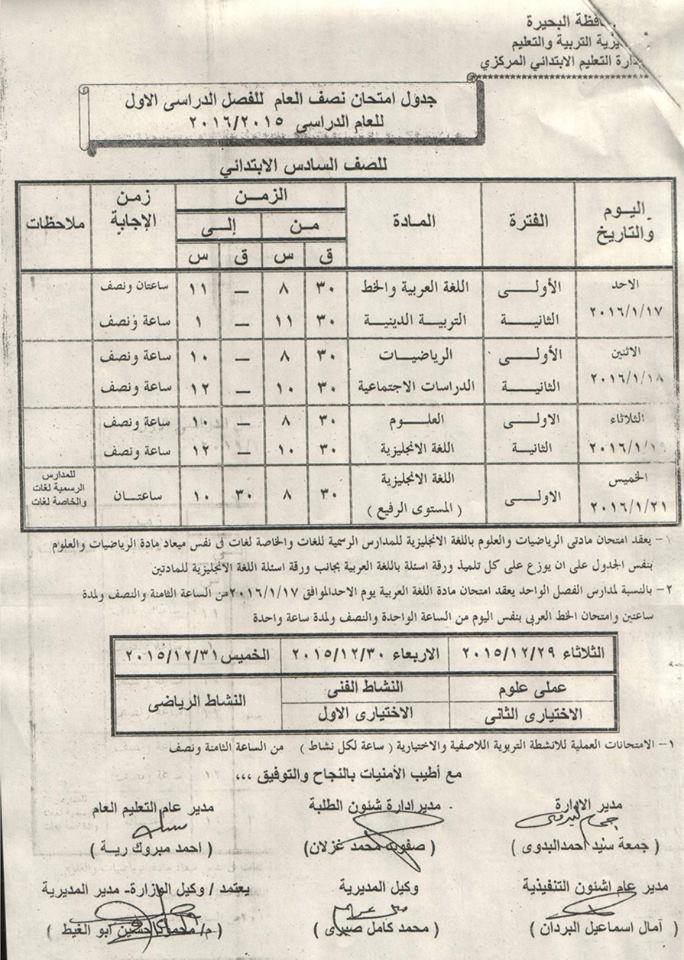 ـافظة البحيرة
ـيرية التربية والتعليم
ـدارة التعليم الابتدائي المركزي
جدول امتحان نصف العام للفصل الدراسى الاول
للعام الدراسى ٢٠١٦/٢٠١٥
للصف السادس الابتدائي
اليوم والتاريخ | الفترة | المادة | الزمن | زمن الإجابة | ملاحظات
من | إلى
ق | س | ق | س
الاحد ٢٠١٦/١/١٧ | الأولى | اللغة العربية والخط | ٣٠ | ٨ | — | ١١ | ساعتان ونصف
الثانية | التربية الدينية | ٣٠ | ١١ | — | ١ | ساعة ونصف
الاثنين ٢٠١٦/١/١٨ | الأولى | الرياضيات | ٣٠ | ٨ | — | ١٠ | ساعة ونصف
الثانية | الدراسات الاجتماعية | ٣٠ | ١٠ | — | ١٢ | ساعة ونصف
الثلاثاء ٢٠١٦/١/١٩ | الاولى | العلوم | ٣٠ | ٨ | — | ١٠ | ساعة ونصف
الثانية | اللغة الانجليزية | ٣٠ | ١٠ | — | ١٢ | ساعة ونصف
الخميس ٢٠١٦/١/٢١ | الاولى | اللغة الانجليزية (المستوى الرفيع) | ٣٠ | ٨ | ٣٠ | ١٠ | ساعتان | للمدارس الرسمية لغات والخاصة لغات
١- يعقد امتحان مادتى الرياضيات والعلوم باللغة الانجليزية للمدارس الرسمية للغات والخاصة لغات فى نفس ميعاد مادة الرياضيات والعلوم
بنفس الجدول على ان يوزع على كل تلميذ ورقة اسئلة باللغة العربية بجانب ورقة اسئلة اللغة الانجليزية للمادتين
٢- بالنسبة لمدارس الفصل الواحد يعقد امتحان مادة اللغة العربية يوم الاحد الموافق ٢٠١٦/١/١٧ من الساعة الثامنة والنصف ولمدة
ساعتين وامتحان الخط العربى بنفس اليوم من الساعة الواحدة والنصف ولمدة ساعة واحدة
الثلاثاء ٢٠١٥/١٢/٢٩ | الاربعاء ٢٠١٥/١٢/٣٠ | الخميس ٢٠١٥/١٢/٣١
عملى علوم | النشاط الفنى | النشاط الرياضى
الاختيارى الثانى | الاختيارى الاول
١- الامتحانات العملية للانشطة التربوية اللاصفية والاختيارية ( ساعة لكل نشاط ) من الساعة الثامنة ونصف
مع أطيب الأمنيات بالنجاح والتوفيق ،،،
مدير الادارة | مدير ادارة شئون الطلبة | مدير عام التعليم العام
( جمعة سيد احمد البدوى ) | ( صفوت محمد غزلان ) | ( احمد مبروك رية )
مدير عام اشئون التنفيذية | وكيل المديرية | يعتمد / وكيل الوزارة- مدير المديرية
( آمال اسماعيل البردان ) | ( محمد كامل صبرى ) | ( م/ محمد حسين ابو الغيط )